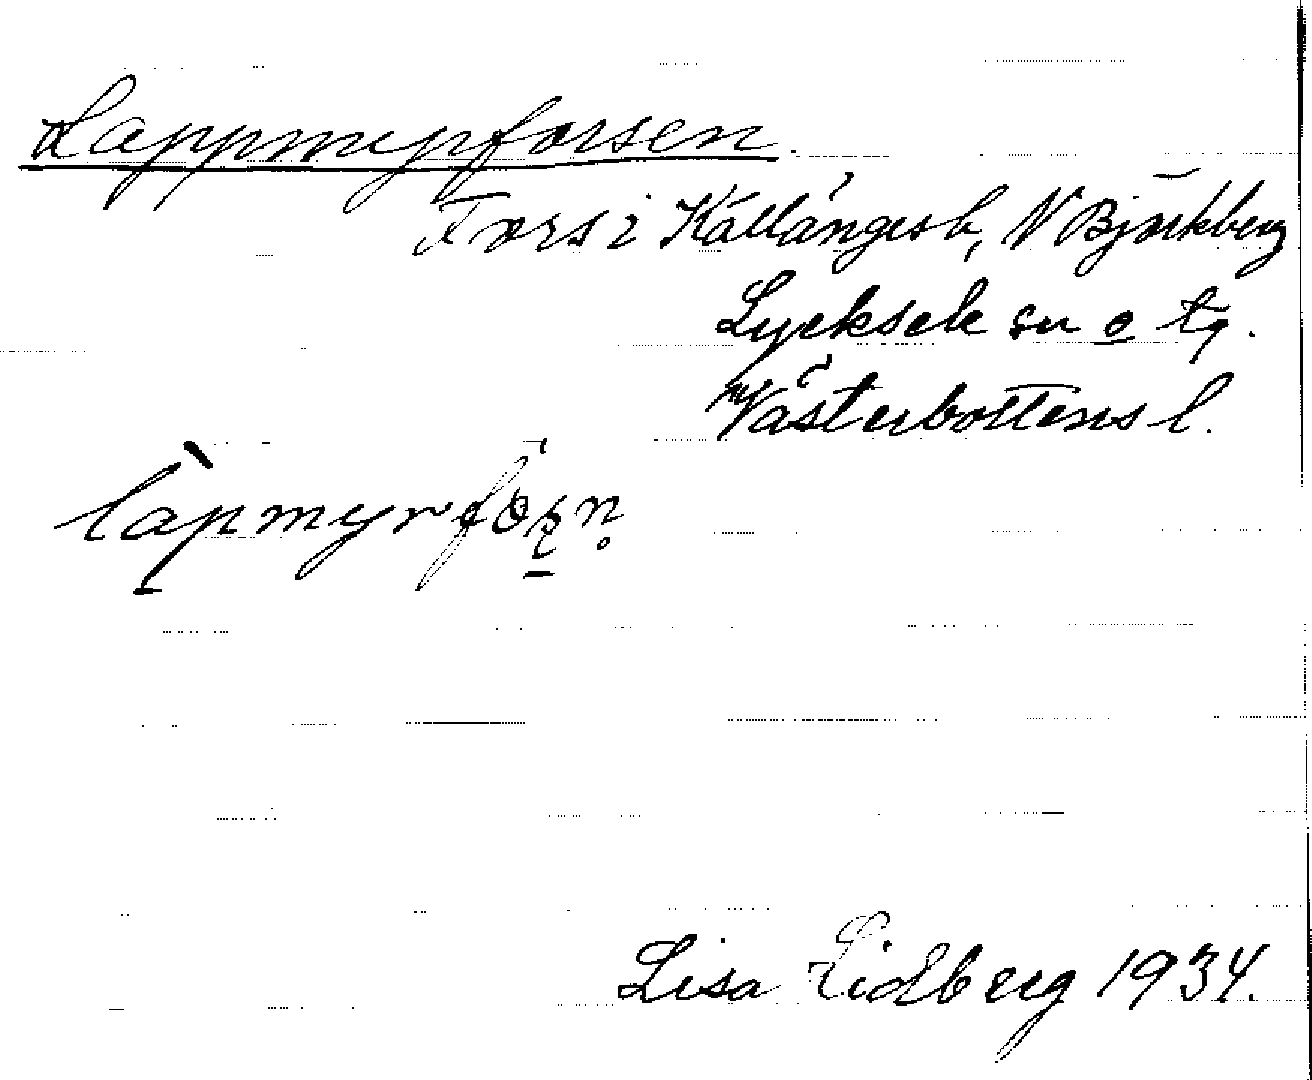 Lappmyrforsen.
Fors i Kallängesb, N Björkberg
Lycksele sn o tg.
Västerbottens l.
làpmyrfös̱n̥
Lisa Lidberg 1934.